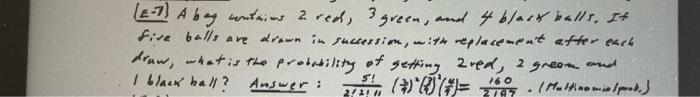 [E-7] A bag contains 2 red, 3 green, and 4 black balls. If
five balls are drawn in succession, with replacement after each
draw, what is the probability of getting 2 red, 2 green and
1 black ball? Answer: 5!/2!2!1! (2/9)²(3/9)²(4/9) = 160/2187. (Multinomial prob.)